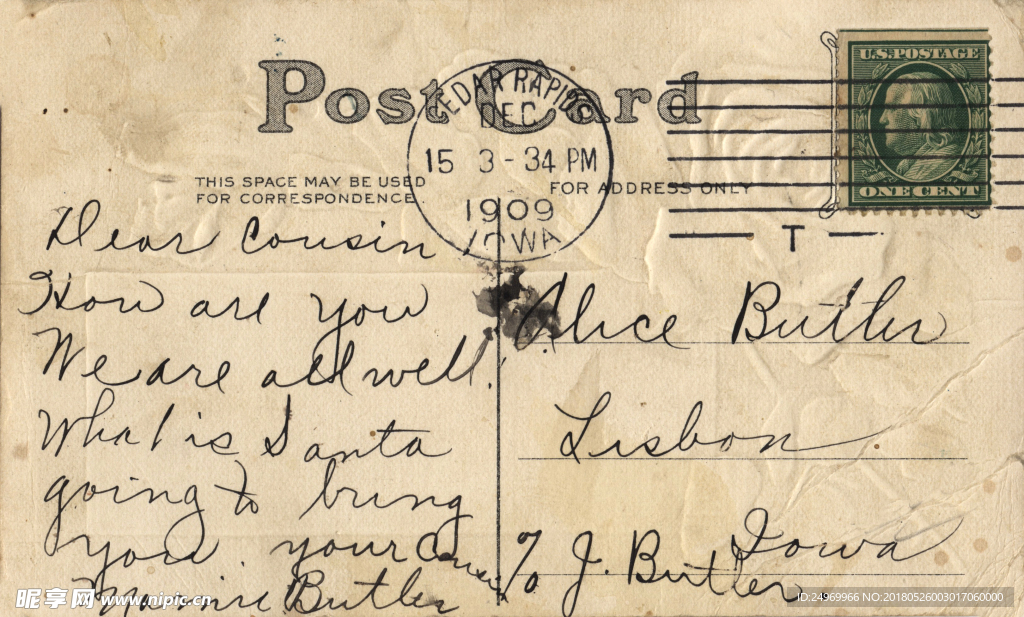 Post Card
CEDAR RAPIDS
DEC
15 3-34 PM
1909
IOWA
U.S. POSTAGE
ONE CENT
T
THIS SPACE MAY BE USED
FOR CORRESPONDENCE.
FOR ADDRESS ONLY
Dear Cousin
How are you
We are all well.
What is Santa
going to bring
you. your Cousin
Butler
Alice Butler
Lisbon
Iowa
℅ J. Butler
昵享网 www.nipic.cn
ID:24969966 NO:20180526003017060000